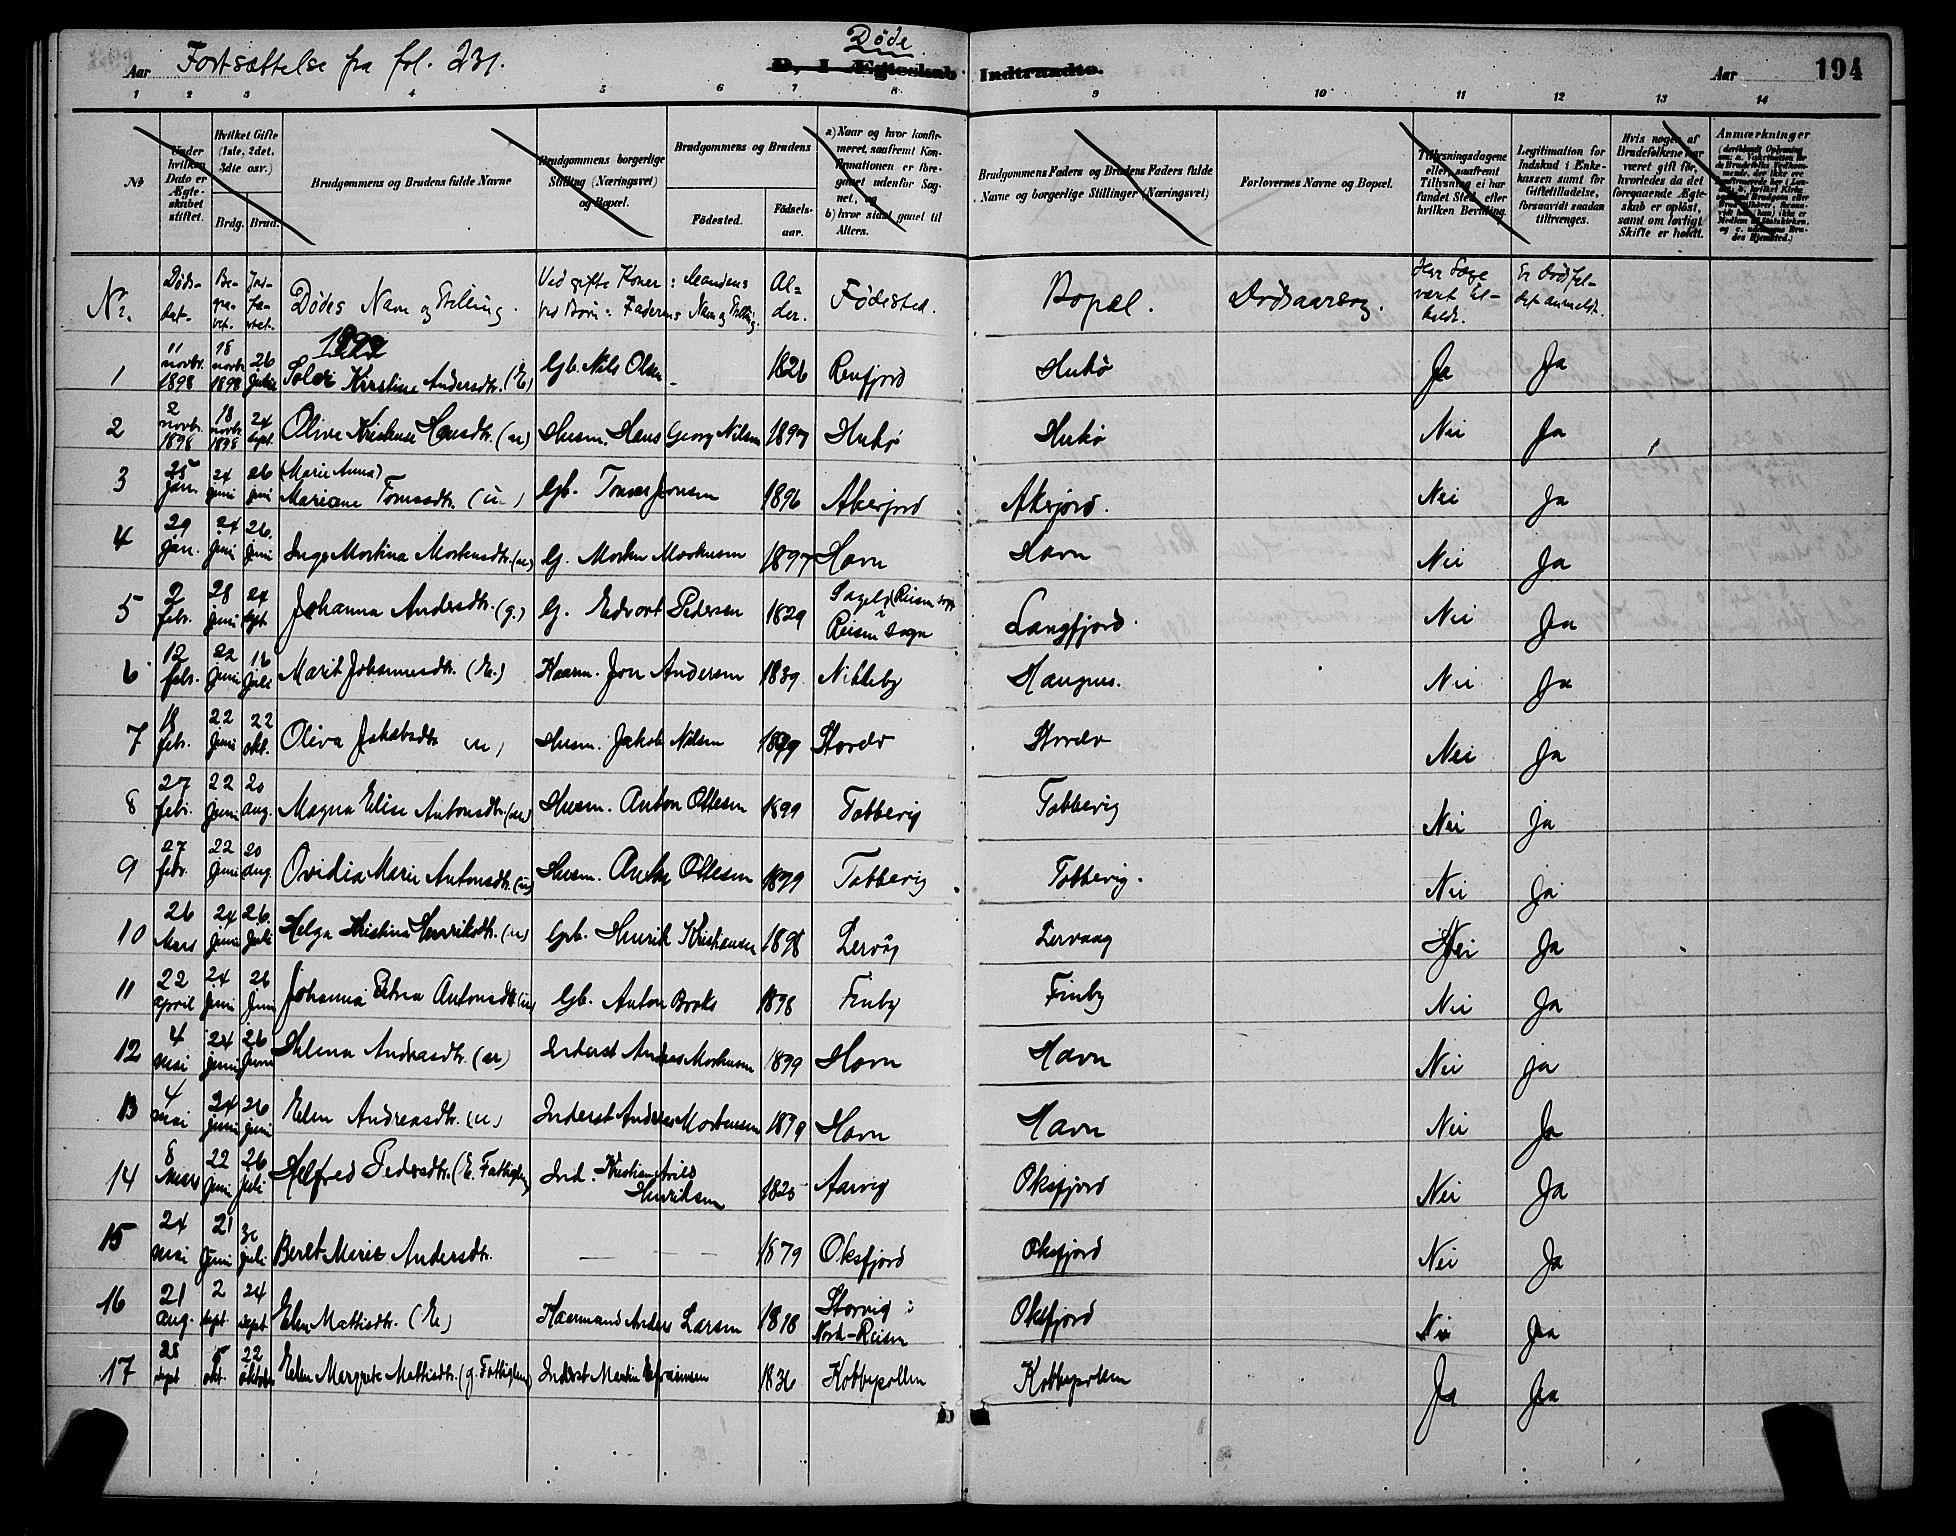 Aar Fortsættelse fra fol. 231. Døde
D, I Ægteskab Indtraadte. Aar 194
1 2 3 4 5 6 7 8 9 10 11 12 13 14
No
Under hvilken Dato er Ægteskabet stiftet.
Hvilket Gifte (1ste, 2det, 3die osv.) Brdg. Brud.
Brudgommens og Brudens fulde Navne
Brudgommens borgerlige Stilling (Næringsvei) og Bopæl.
Brudgommens og Brudens Fødested. Fødsels-aar.
a) Naar og hvor konfirmeret, saafremt Konfirmationen er foregaaet udenfor Sognet, og
b) hvor sidst gaaet til Alters.
Brudgommens Faders og Brudens Faders fulde Navne og borgerlige Stillinger (Næringsvei)
Forlovernes Navne og Bopæl.
Tillysningsdagene eller saafremt Tillysning ei har fundet Sted, efter hvilken Bevilling.
Legitimation for Indskud i Enkekassen samt for Giftetilladelse, forsaavidt saadan tiltrænges.
Hvis nogen af Brudefolkene har været gift før, hvorledes da det foregaaende Ægteskab er opløst, samt om lovligt Skifte er holdt.
Anmærkninger
Nr. Døds-dat. Be-gra-vet. Jord-fæ-stet. Dødes Navn og Stilling. Ved gifte Koner: Mandens Ved Børn: Faderens Navn og Stilling. Al-der. Fødested. Bopæl. Dødsaarsag. Har Læge vært til-kaldt. Er Dødsfal-det anmeldt.
1899
1 11 novbr. 1898 18 novbr 1898 26 Kirstine Andersdtr. (E) Gb. Nils Olsen 1826 Refjord Hukø Ja Ja
2 2 novbr. 1898 18 novbr 1898 24 sept. Olive Kristense Hansdtr. (u) Husm. Hans Georg Nilsen 1897 Hukø Hukø Nei Ja
3 25 jan. 24 juni 26 juni (Marie Anna) Mariane Tomasdtr. (u) Gb. Tomas Jonsen 1896 Akerjord Akerjord. Nei Ja
4 29 jan. 24 juni 26. juni Inga Mortina Mortensdtr. (u) G. Morten Mortensen 1897 Havn Havn Nei Ja
5 2 febr. 28 juni 24 sept. Johanna Andersdtr. (g.) G. Edvart Pedersen 1829 Reisen Sogn Langfjord. Nei Ja
6 12 febr. 22 juni 16 juli Marit Johannesdtr. (E.) Kaarm. Jon Andersen 1839 Nikkeby Haugnes. Nei Ja
7 18 febr. 22 juni 22 okt. Oliva Jakobsdtr. (u) Husm. Jakob Nilsen 1899 Storelv Storelv Nei ja
8 27 febr. 22 juni 20 aug. Magna Elise Antonsdtr. (u) Husm. Anton Ottesen 1899 Tobbevig Tobbevig Nei ja
9 27 febr. 22 juni 20 aug. Ovidia Marie Antonsdtr. (u) Husm. Anton Ottesen 1899 Tobbevig Tobbevig. Nei ja
10 26 Mars 24 juni 26. juli Helga Kristina Henriksdtr. (u) Gb. Henrik Kristiansen 1898 Lervåg Lervaag Nei Ja
11 22 april 24 juni 26 juni Johanna Petrea Antonsdtr. (u) Gb. Anton Broks 1898 Finby Finby Nei Ja
12 4 mai 24 juni 26 juni Helena Andreasdtr. (u) Inderst Andreas Mortensen 1899 Havn Havn Nei ja
13 4 mai 24 juni 26 juni Elen Andreasdtr. (u) Inderst Andreas Mortensen 1899 Havn Havn Nei Ja
14 8 Mars 22 juni 26 juli Alfred Pedersdtr. (E. Fattiglem) Ind. Henriksen 1825 Aarvig Oksfjord Nei Ja
15 24 mai 21 juni 30 juli Beret Marie Andersdtr. — — — 1879 Oksfjord Oksfjord Nei Ja
16 21 aug. 2 sept. 24 sept. Elen Mattisdtr. (E) Kaarmand Anders Larsen 1818 Storvig i Nord-Reisen Oksfjord Nei Ja
17 28 sept 5 okt. 22 oktober Elen Margrete Mattisdtr. (g. Fattiglem) Inderst Martin Efraimsen 1836 Kobbepollen Kobbepollen Ja Ja